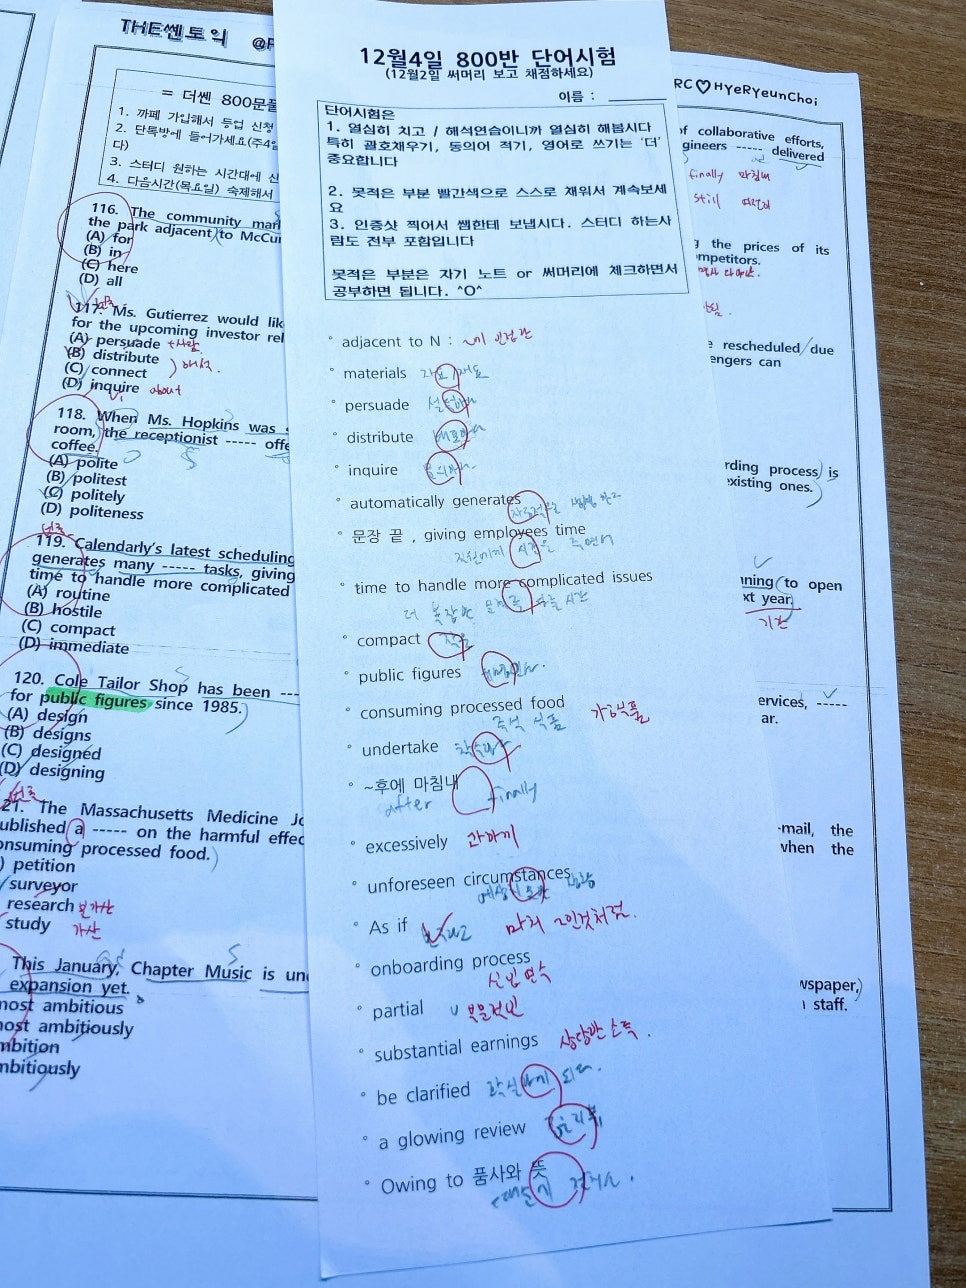 THE쎈토익
= 더쎈 800문풀
1. 까페 가입해서 등업 신청
2. 단톡방에 들어가세요(주4일
다)
3. 스터디 원하는 시간대에 신
4. 다음시간(목요일) 숙제해서
116. The community mar
the park adjacent to McCu
(A) for
(B) in
(C) here
(D) all
117. Ms. Gutierrez would lik
for the upcoming investor rel
(A) persuade +사람
(B) distribute
(C) connect
(D) inquire about
118. When Ms. Hopkins was
room, the receptionist ----- offe
coffee.
(A) polite
(B) politest
(C) politely
(D) politeness
119. Calendarly's latest scheduling
generates many ----- tasks, giving
time to handle more complicated
(A) routine
(B) hostile
(C) compact
(D) immediate
120. Cole Tailor Shop has been ---
for public figures since 1985.
(A) design
(B) designs
(C) designed
(D) designing
21. The Massachusetts Medicine Jo
ublished a ----- on the harmful effec
onsuming processed food.
) petition
surveyor
research 불가산
study 가산
This January, Chapter Music is un
expansion yet.
most ambitious
most ambitiously
mbition
mbitiously
12월4일 800반 단어시험
(12월2일 써머리 보고 채점하세요)
이름 :
단어시험은
1. 열심히 치고 / 해석연습이니까 열심히 해봅시다
특히 괄호채우기, 동의어 적기, 영어로 쓰기는 '더'
중요합니다
2. 못적은 부분 빨간색으로 스스로 채워서 계속보세
요
3. 인증샷 찍어서 쌤한테 보냅시다. 스터디 하는사
람도 전부 포함입니다
못적은 부분은 자기 노트 or 써머리에 체크하면서
공부하면 됩니다. ^O^
° adjacent to N : ~에 인접한
° materials
° persuade 설득하다
° distribute 배포하다
° inquire 문의하다
° automatically generates
° 문장 끝 , giving employees time
직원에게 시간을 주면서
° time to handle more complicated issues
더 복잡한 문제를 다룰 시간
° compact
° public figures
° consuming processed food
즉석 식품 가공식품
° undertake 착수하다
° ~후에 마침내
after finally
° excessively 과하게
° unforeseen circumstances
° As if 마치 ~인것처럼.
° onboarding process
신입 연수
° partial 부분적인
° substantial earnings 상당한 소득.
° be clarified
° a glowing review
° Owing to 품사와 뜻
RC♡HyeRyeunChoi
f collaborative efforts,
gineers ----- delivered
finally 마침내
still 여전히
g the prices of its
mpetitors.
e rescheduled due
engers can
rding process is
existing ones.
nning to open
xt year.
기간
ervices, -----
ar.
-mail, the
when the
wspaper,
staff.